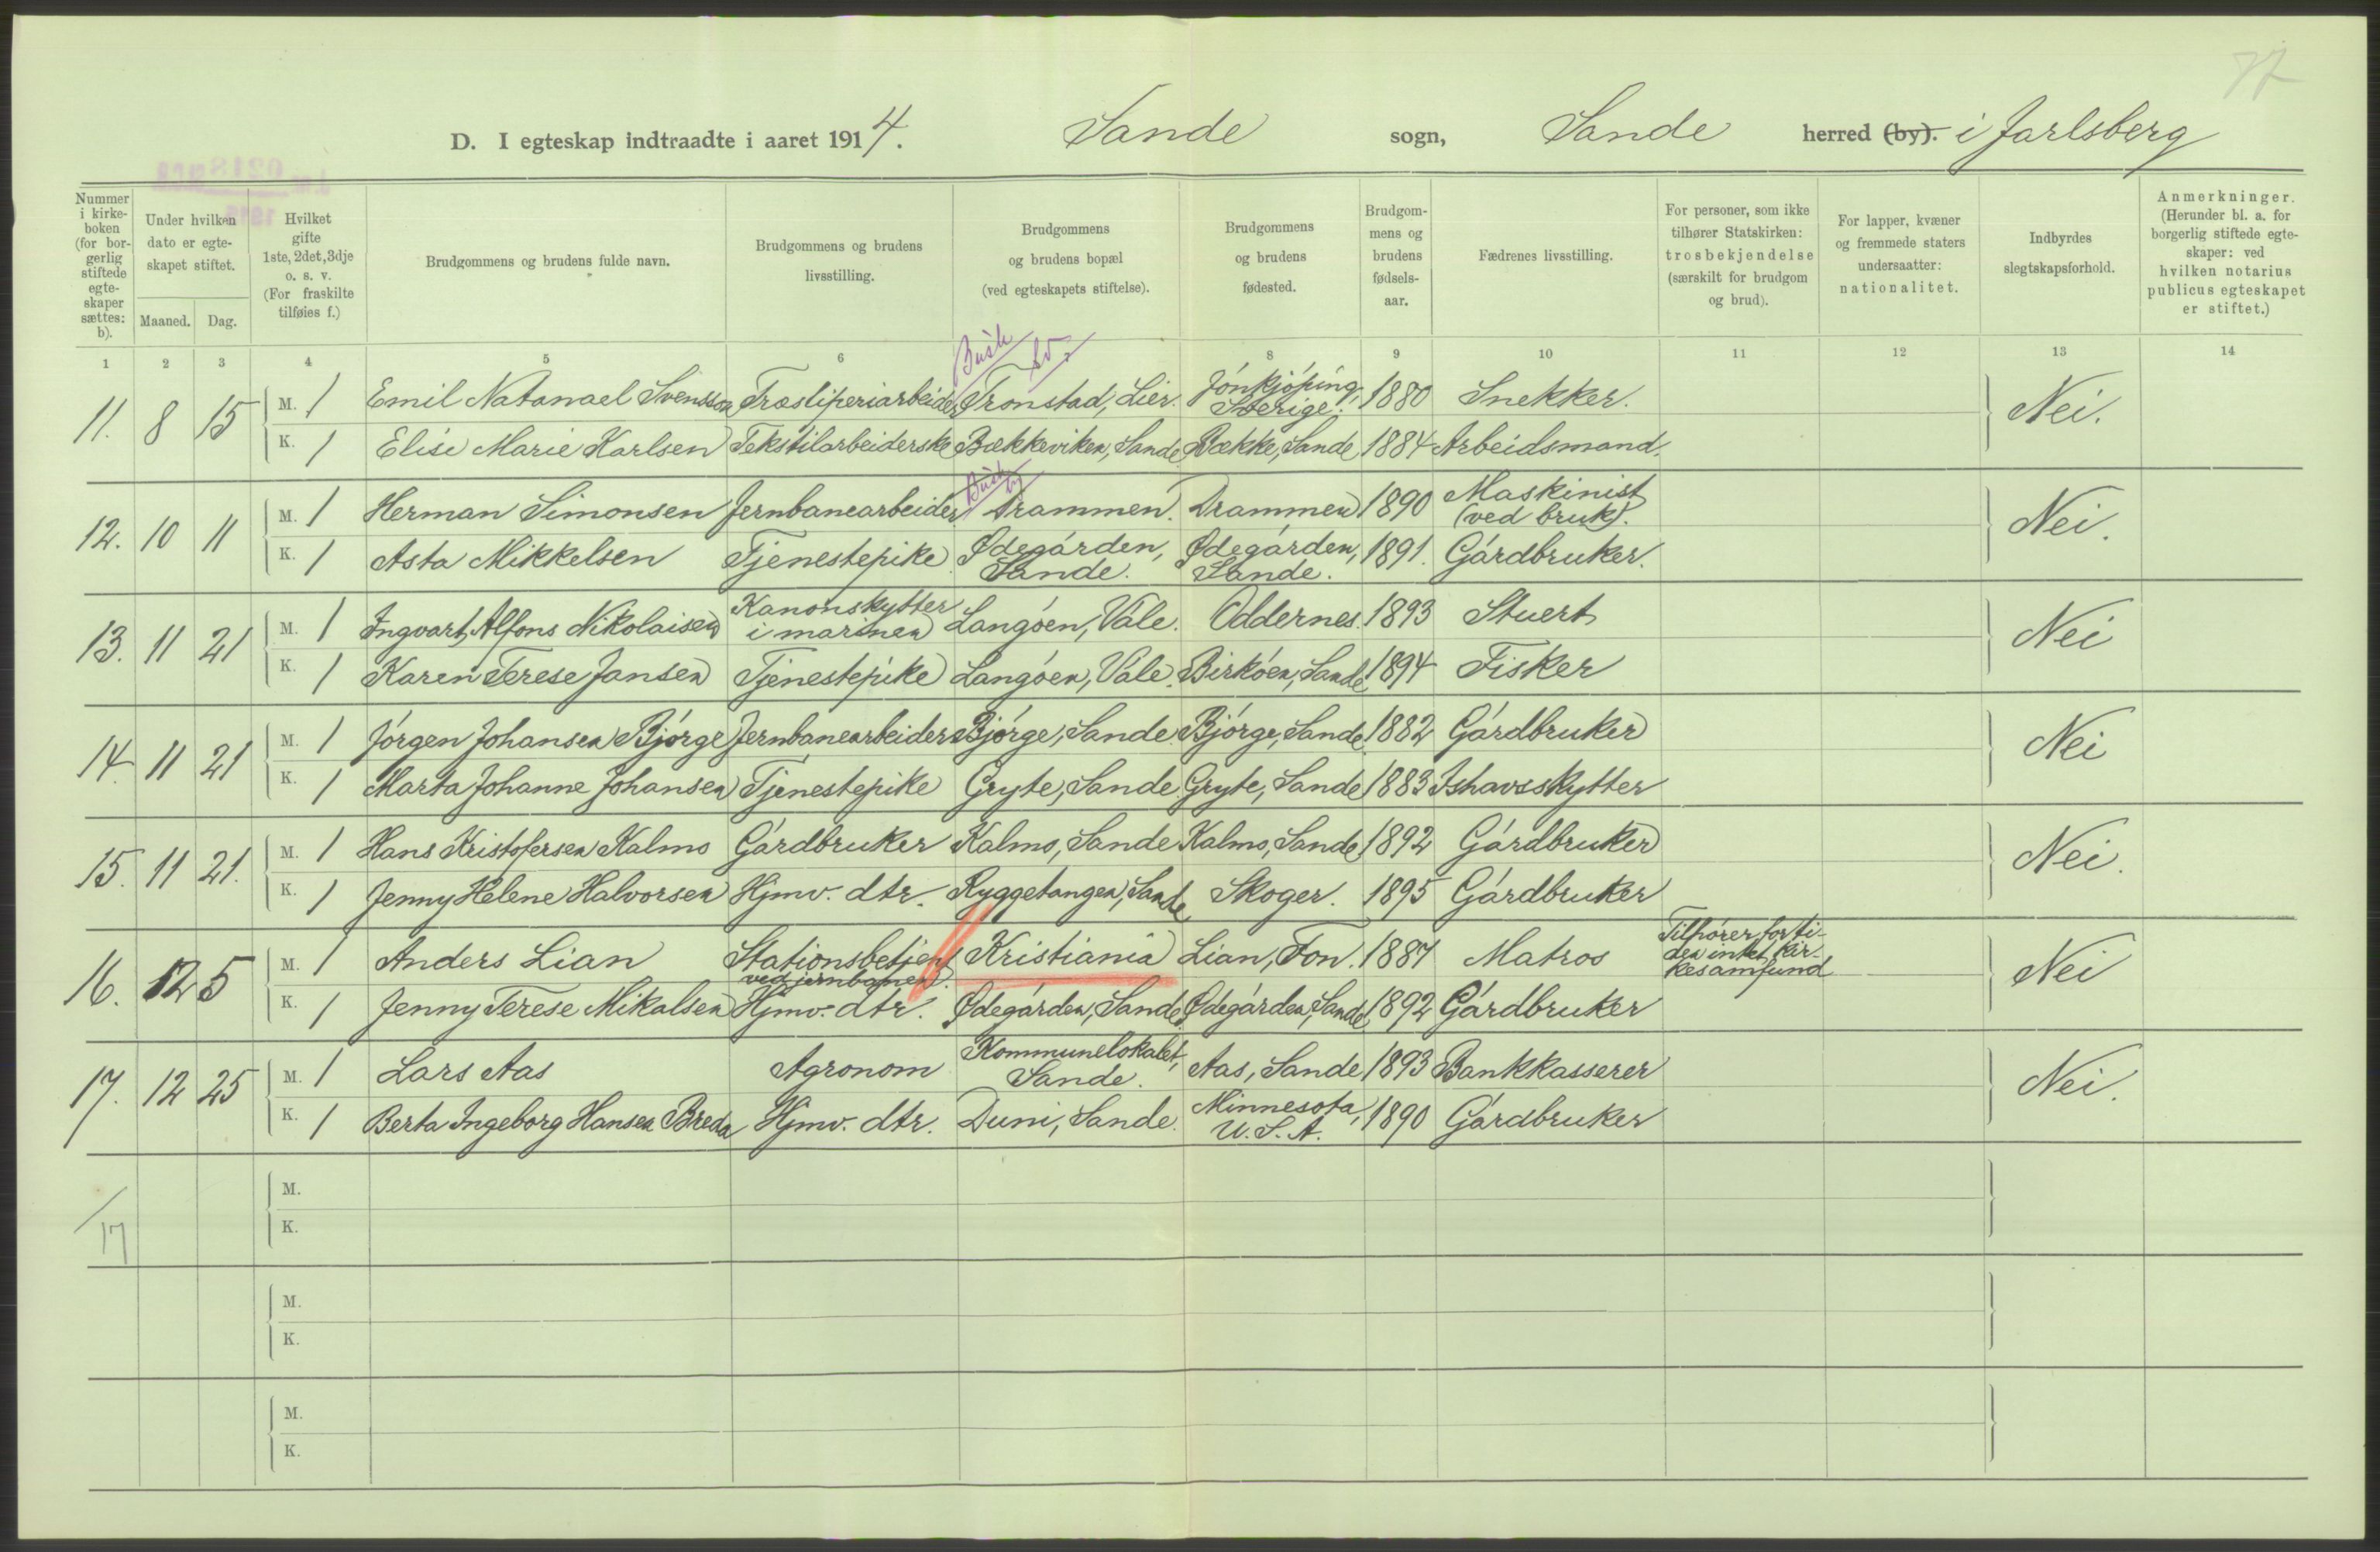 77
D. I egteskap indtraadte i aaret 1914. Sande sogn, Sande herred (by). i Jarlsberg
Nummer i kirke-boken (for bor-gerlig stiftede egte-skaper sættes: b).
Under hvilken dato er egte-skapet stiftet.
Maaned. Dag.
Hvilket gifte 1ste, 2det, 3dje o. s. v. (For fraskilte tilføies f.)
Brudgommens og brudens fulde navn.
Brudgommens og brudens livsstilling.
Brudgommens og brudens bopæl (ved egteskapets stiftelse).
Brudgommens og brudens fødested.
Brudgom-mens og brudens fødsels-aar.
Fædrenes livsstilling.
For personer, som ikke tilhører Statskirken: trosbekjendelse (særskilt for brudgom og brud).
For lapper, kvæner og fremmede staters undersaatter: nationalitet.
Indbyrdes slegtskapsforhold.
Anmerkninger. (Herunder bl. a. for borgerlig stiftede egte-skaper: ved hvilken notarius publicus egteskapet er stiftet.)
1 2 3 4 5 6 8 9 10 11 12 13 14
Busk
11. 8 15 M. 1 Emil Natanael Svensson Træsliperiarbeider Tronstad, Lier. Jönkjöping, Sverige. 1880 Snekker. Nei.
K. 1 Elise Marie Karlsen Tekstilarbeiderske Bækkeviken, Sande Bække, Sande 1884 Arbeidsmand.
Busk by
12. 10 11 M. 1 Herman Simonsen Jernbanearbeider Drammen. Drammen 1890 Maskinist (ved bruk). Nei.
K. 1 Asta Mikkelsen Tjenestepike Ødegården, Sande. Ødegården, Sande. 1891. Gårdbruker.
13. 11 21 M. 1 Ingvart Alfons Nikolaisen Kanonskytter i marinen Langöen, Våle. Oddernes. 1893 Stuert Nei
K. 1 Karen Terese Jansen Tjenestepike Langöen, Våle. Birköen, Sande 1894 Fisker
14. 11 21 M. 1 Jörgen Johansen Bjørge Jernbanearbeider Bjørge, Sande Bjørge, Sande 1882 Gårdbruker Nei
K. 1 Marta Johanne Johansen Tjenestepike Gryte, Sande Gryte, Sande 1883 Ishavsskytter
15. 11 21. M. 1 Hans Kristofersen Kalmo Gårdbruker Kalmo, Sande Kalmo, Sande 1892 Gårdbruker Nei.
K. 1 Jenny Helene Halvorsen Hjmv. dtr. Ryggetangen, Sande Skoger. 1895 Gårdbruker
16. 12 5 M. 1 Anders Lian Stationsbetjent ved jernbanen. Kristiania Lian, Fon. 1887 Matros Tilhører for ti-den intet kir-kesamfund Nei
K. 1 Jenny Terese Mikalsen Hjmv. dtr. Ødegården, Sande Ødegården, Sande 1892 Gårdbruker
17. 12 25 M. 1 Lars Aas Agronom Kommunelokalet, Sande. Aas, Sande 1893 Bankkasserer Nei.
K. 1 Berta Ingeborg Hansen Breda Hjmv. dtr. Duni, Sande. Minnesota, U. S. A. 1890 Gårdbruker
M.
K.
17
M.
K.
M.
K.